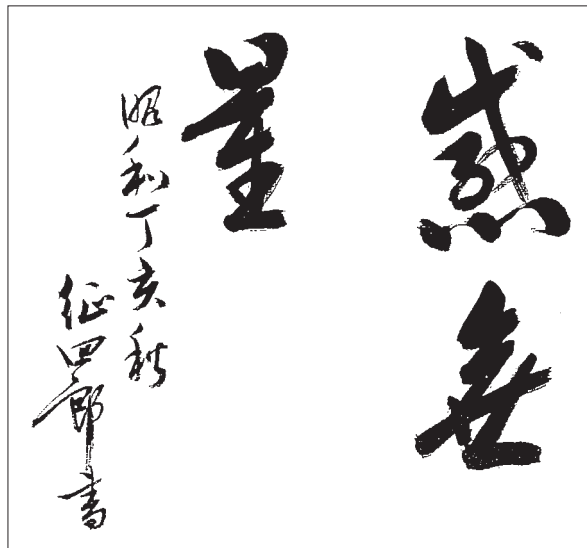 感無
量
昭和丁亥秋
征四郎書